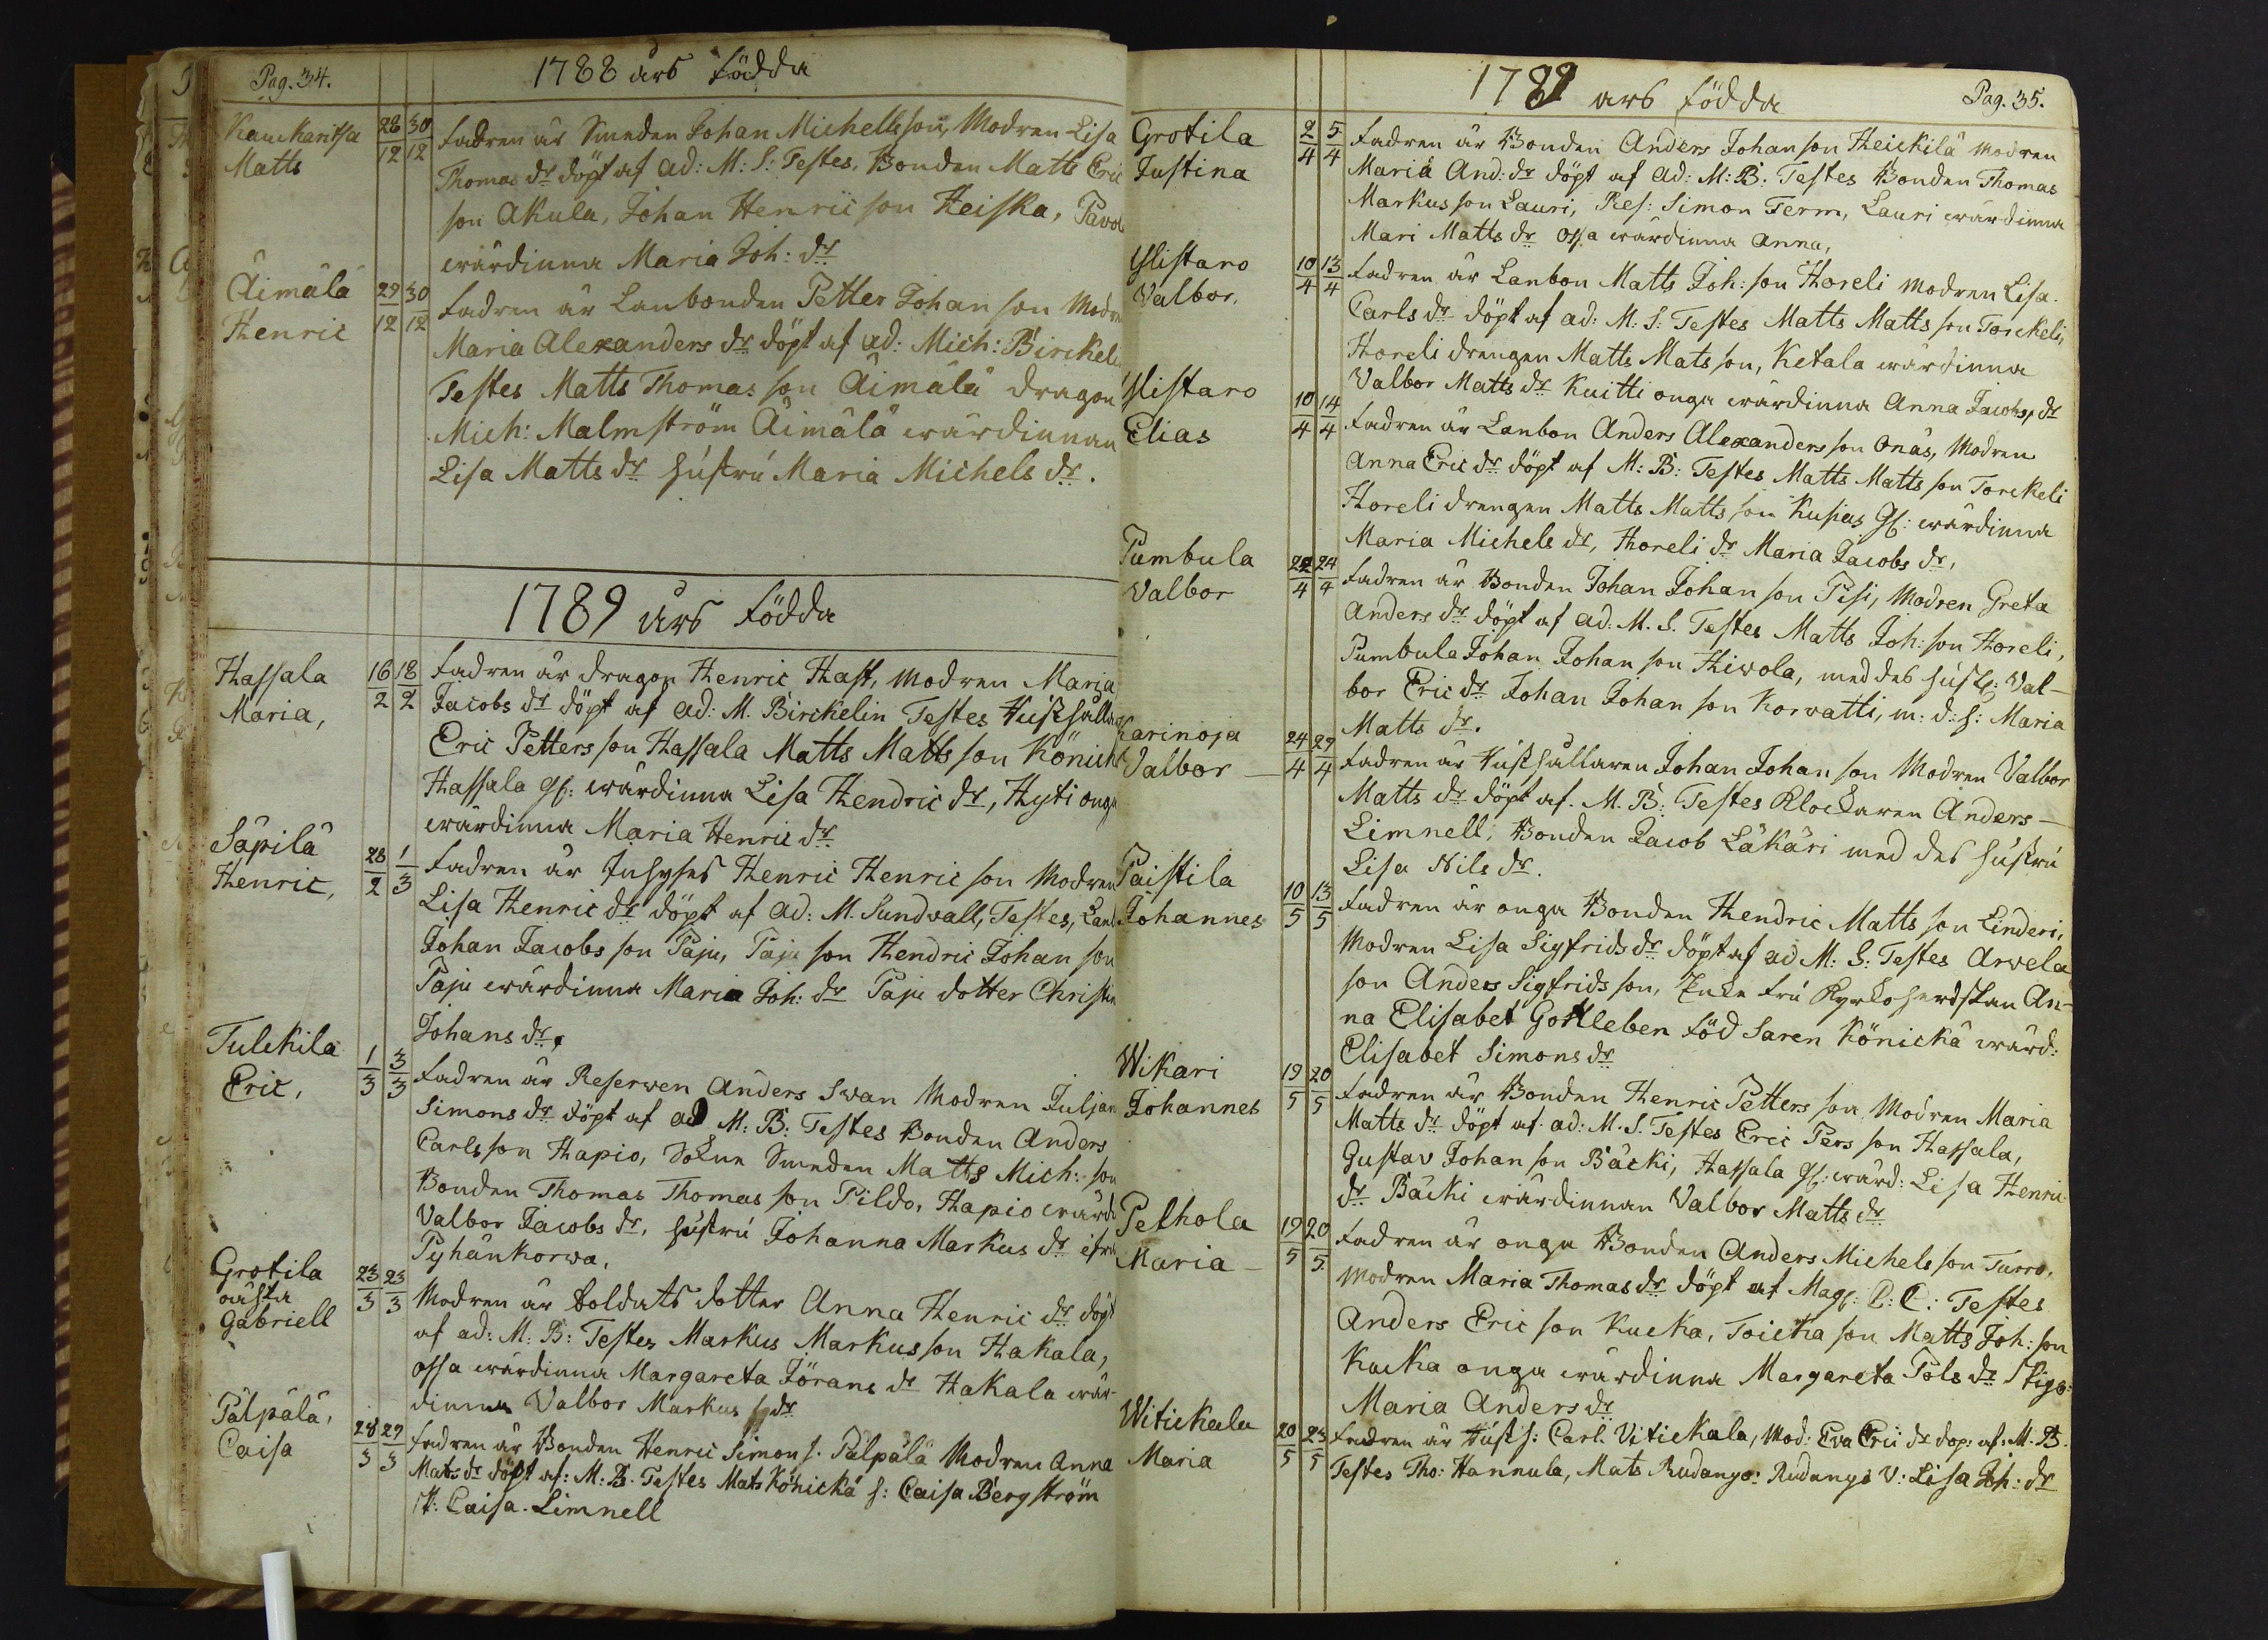 Pag. 34.
1788 års födda
KaucKaritsa
Matts
28/12 30/12
fadren är Smeden Johan Michellsson, Modren Lisa
Thomas dr döpt af ad: M: S: Testes, Bonden Matts Eric
son Akula, Johan Henric son Heiska,
wärdinna Maria Joh: dr
Äimälä
Henric
29/12 30/12
fadren är Lanbonden Petter Johan son Modren
Maria Alexanders dr döpt af ad: Mich: Birckelin
Testes Matts Thomas son Äimälä dragon
Mich: Malmström Äimälä wärdinnan
Lisa Matts dr hustru Maria Michels dr.
1789 års födda
Hassala
Maria,
16/2 18/2
fadren är dragon Henric Hast, Modren Maria
Jacobs dr döpt af ad: M. Birckelin Testes
Eric Petters son Hassala Matts Matts son Könick
Hassala gl: wärdinna Lisa Hendric dr, Hyti onga
wärdinna Maria Henric dr
Säpilä
Henric,
28/2 1/3
fadren är Inhyses Henric Henric son Modren
Lisa Henric dr döpt af ad: M. Sundvall, Testes, Lanb
Johan Jacobs son Paju, Paju son Hendric Johan son
Paju wärdinna Maria Joh: dr Paju dotter Christin
Johans dr,
Tulckila
Eric,
1/3 3/3
fadren är Reserven Anders Swan Modren Juljan
Simons dr döpt af ad M: B: Testes Bonden Anders
Carls son Hapio, Sokne Smeden Matts Mich: son
Bonden Thomas Thomas son Pildo, Hapio wärd
Valbor Jacobs dr, hustru Johanna Markus dr ifrån
Pyhänkorwa,
Grotila
oäkta
Gabriell
23/3 23/3
Modren är Soldats dotter Anna Henric dr döpt
af ad: M: B: Testes Markus Markus son Hakala,
ossa wärdinna Margareta Jörans dr Hakala wär-
dinna Valbor Markus dr
Pälpälä,
Caisa
28/3 29/3
fadren är Bonden Henric Simon s. Pälpälä Modren Anna
Mats dr döpt af: M: B. Testes Mats Könickä h: Caisa Bergström
p: Caisa. Limnell
1789 ars födda
Pag. 35.
Grotila
Justina
2/4 5/4
fadren är Bonden Anders Johan son Heickilä Modren
Maria And: dr döpt af ad: M: B: Testes Bonden Thomas
Markus son Lauri, Res: Simon Ferm, Lauri wärdinna
Mari Matts dr ossa wärdinna Anna,
Ylistaro
Valbor,
10/4 13/4
fadren är Lanbon Matts Joh: son Horeli Modren Lisa
Carls dr döpt af ad: M. S: Testes Matts Matts son Torckeli,
Horeli drengen Matts Mats son, Ketala wärdinna
Valbor Matts dr Kuitti onga wärdinna Anna Jacobs dr
Ylistaro
Elias
10/4 14/4
fadren är Lanbon Anders Alexanders son Onäs, Modren
Anna Eric dr döpt af M: B: Testes Matts Matts son Torckeli
Horeli drengen Matts Matts son Kusias gl: wärdinna
Maria Michels dr, Horeli dr Maria Jacobs dr,
Pumbula
Valbor
22/4 24/4
fadren är Bonden Johan Johan son Pesi, Modren Greta
Anders dr döpt af ad: M. S. Testes Matts Joh: son Horeli,
Pumbula Johan Johan son Hiwola, med des hust: Val-
bor Eric dr Johan Johan son Korwatti, m: d: h: Maria
Matts dr.
Karinoja
Valbor
24/4 29/4
fadren är Rusthållaren Johan Johan son Modren Valbor
Matts dr döpt af. M. B: Testes Klockaren Anders -
Limnell, Bonden Jacob Läkäri med des hustru
Lisa Nils dr.
Paistila
Johannes
10/5 13/5
fadren är onga Bonden Hendric Matts son Linderi,
Modren Lisa Sigfrids dr döpt af ad M: S: Testes Arwela
son Anders Sigfrids son, Enke fru Kyrkoherdskan An-
na Elisabet Gottleben föd Saren Könickä wärd:
Elisabet Simons dr
Wikari
Johannes
19/5 20/5
fadren är Bonden Henric Petters son Modren Maria
Matts dr döpt af ad: M. S. Testes Eric Pers son Hassala,
Gustav Johan son Bäcki, Hassala gl: wärd: Lisa Henric
dr Bäcki wärdinnan Valbor Matts dr
Pelhola
Maria -
19/5 20/5
fadren är onga Bonden Anders Michels son Turro,
Modren Maria Thomas dr döpt af Mag: C: C: Testes
Anders Eric son KucKa, Toicka son Matts Joh: son
Kucka onga wärdinna Margareta Påls dr Pigo:
Maria Anders dr
Witickala
Maria
20/5 23/5
fadren är Rusth: Carl Vitickala, Mod: Eva Eric dr döp: af: M. B.
Testes Tho: Hannula, Mats Rudango: Rudango V: Lisa Joh: dr